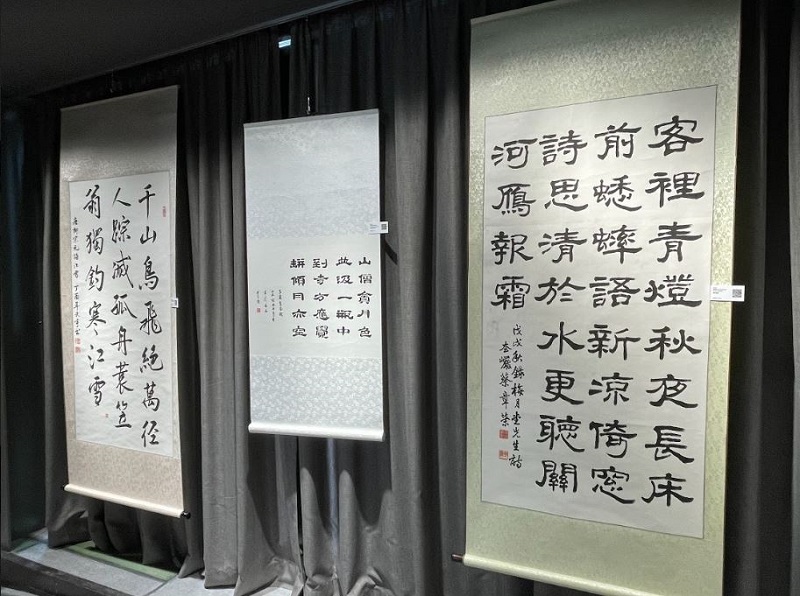 客裡青燈秋夜長床
前蟋蟀語新涼倚窓
詩思清於水更聽關
河鴈報霜
戊戌秋錄梅月堂先生詩
山僧貪月色
並汲一瓶中
到寺方應覺
缾傾月亦空
千山鳥飛絕萬徑
人踪滅孤舟蓑笠
翁獨釣寒江雪
唐柳宗元詩江雪